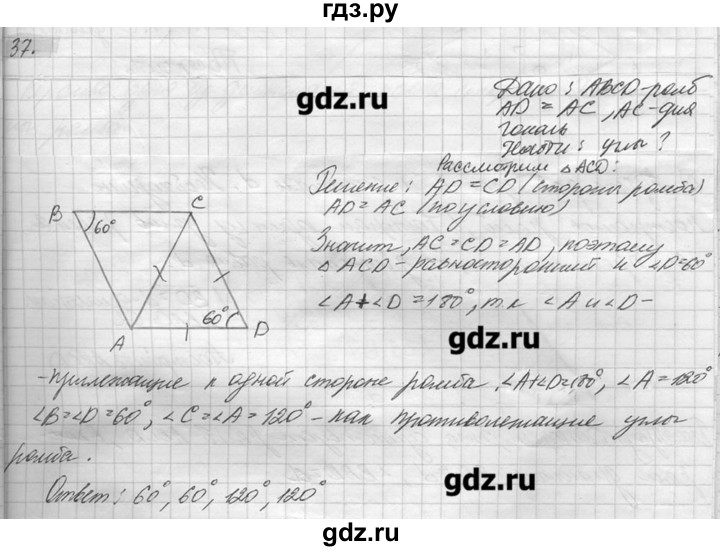 гдз.ру
37.
gdz.ru
Дано: ABCD-ромб
AD = AC, AC-диа
гональ
Найти: углы?
Рассмотрим △ACD:
Решение: AD=CD (стороны ромба)
AD=AC (по условию)
B
C
60°
Значит, AC=CD=AD, поэтому
△ACD-равносторонний и ∠D=60°
∠A+∠D=180°, т.к ∠A и ∠D-
60°
A
D
-прилежащие к одной стороне ромба. ∠A+∠D=180°, ∠A=120°
∠B=∠D=60°, ∠C=∠A=120°-как противолежащие углы
ромба.
gdz.ru
Ответ: 60°, 60°, 120°, 120°
gdz.ru
gdz.ru